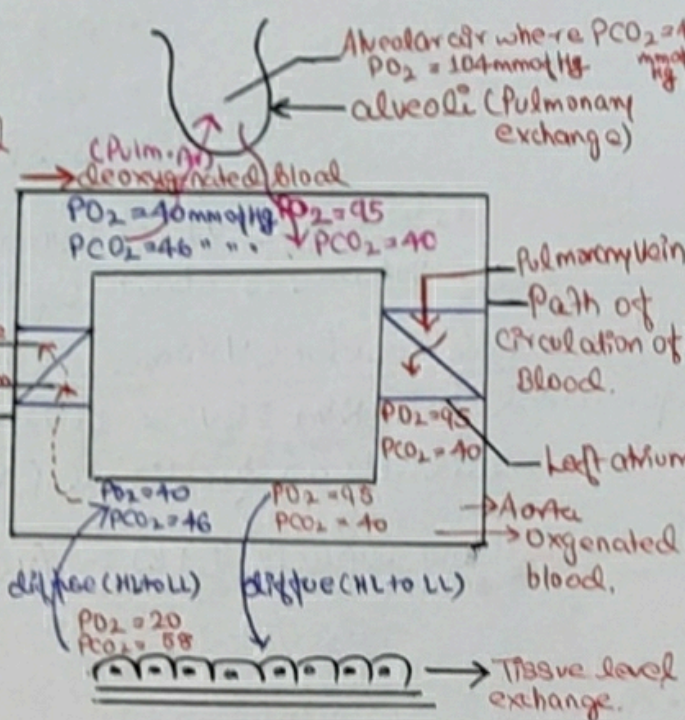 Alveolar air where PCO2 = 4
PO2 = 104 mmof Hg mmof Hg
alveoli (Pulmonary
exchange)
(Pulm. Ar)
deoxygenated blood
PO2 = 40 mmof Hg PO2 = 95
PCO2 = 46 " " " PCO2 = 40
Pulmonary Vein
Path of
Circulation of
Blood.
PO2 = 95
PCO2 = 40
Left atrium
PO2 = 40 PO2 = 95
PCO2 = 46 PCO2 = 40
Aorta
Oxgenated
blood.
diffuse (HL to LL) diffue (HL to LL)
PO2 = 20
PCO2 = 58
Tissue level
exchange.